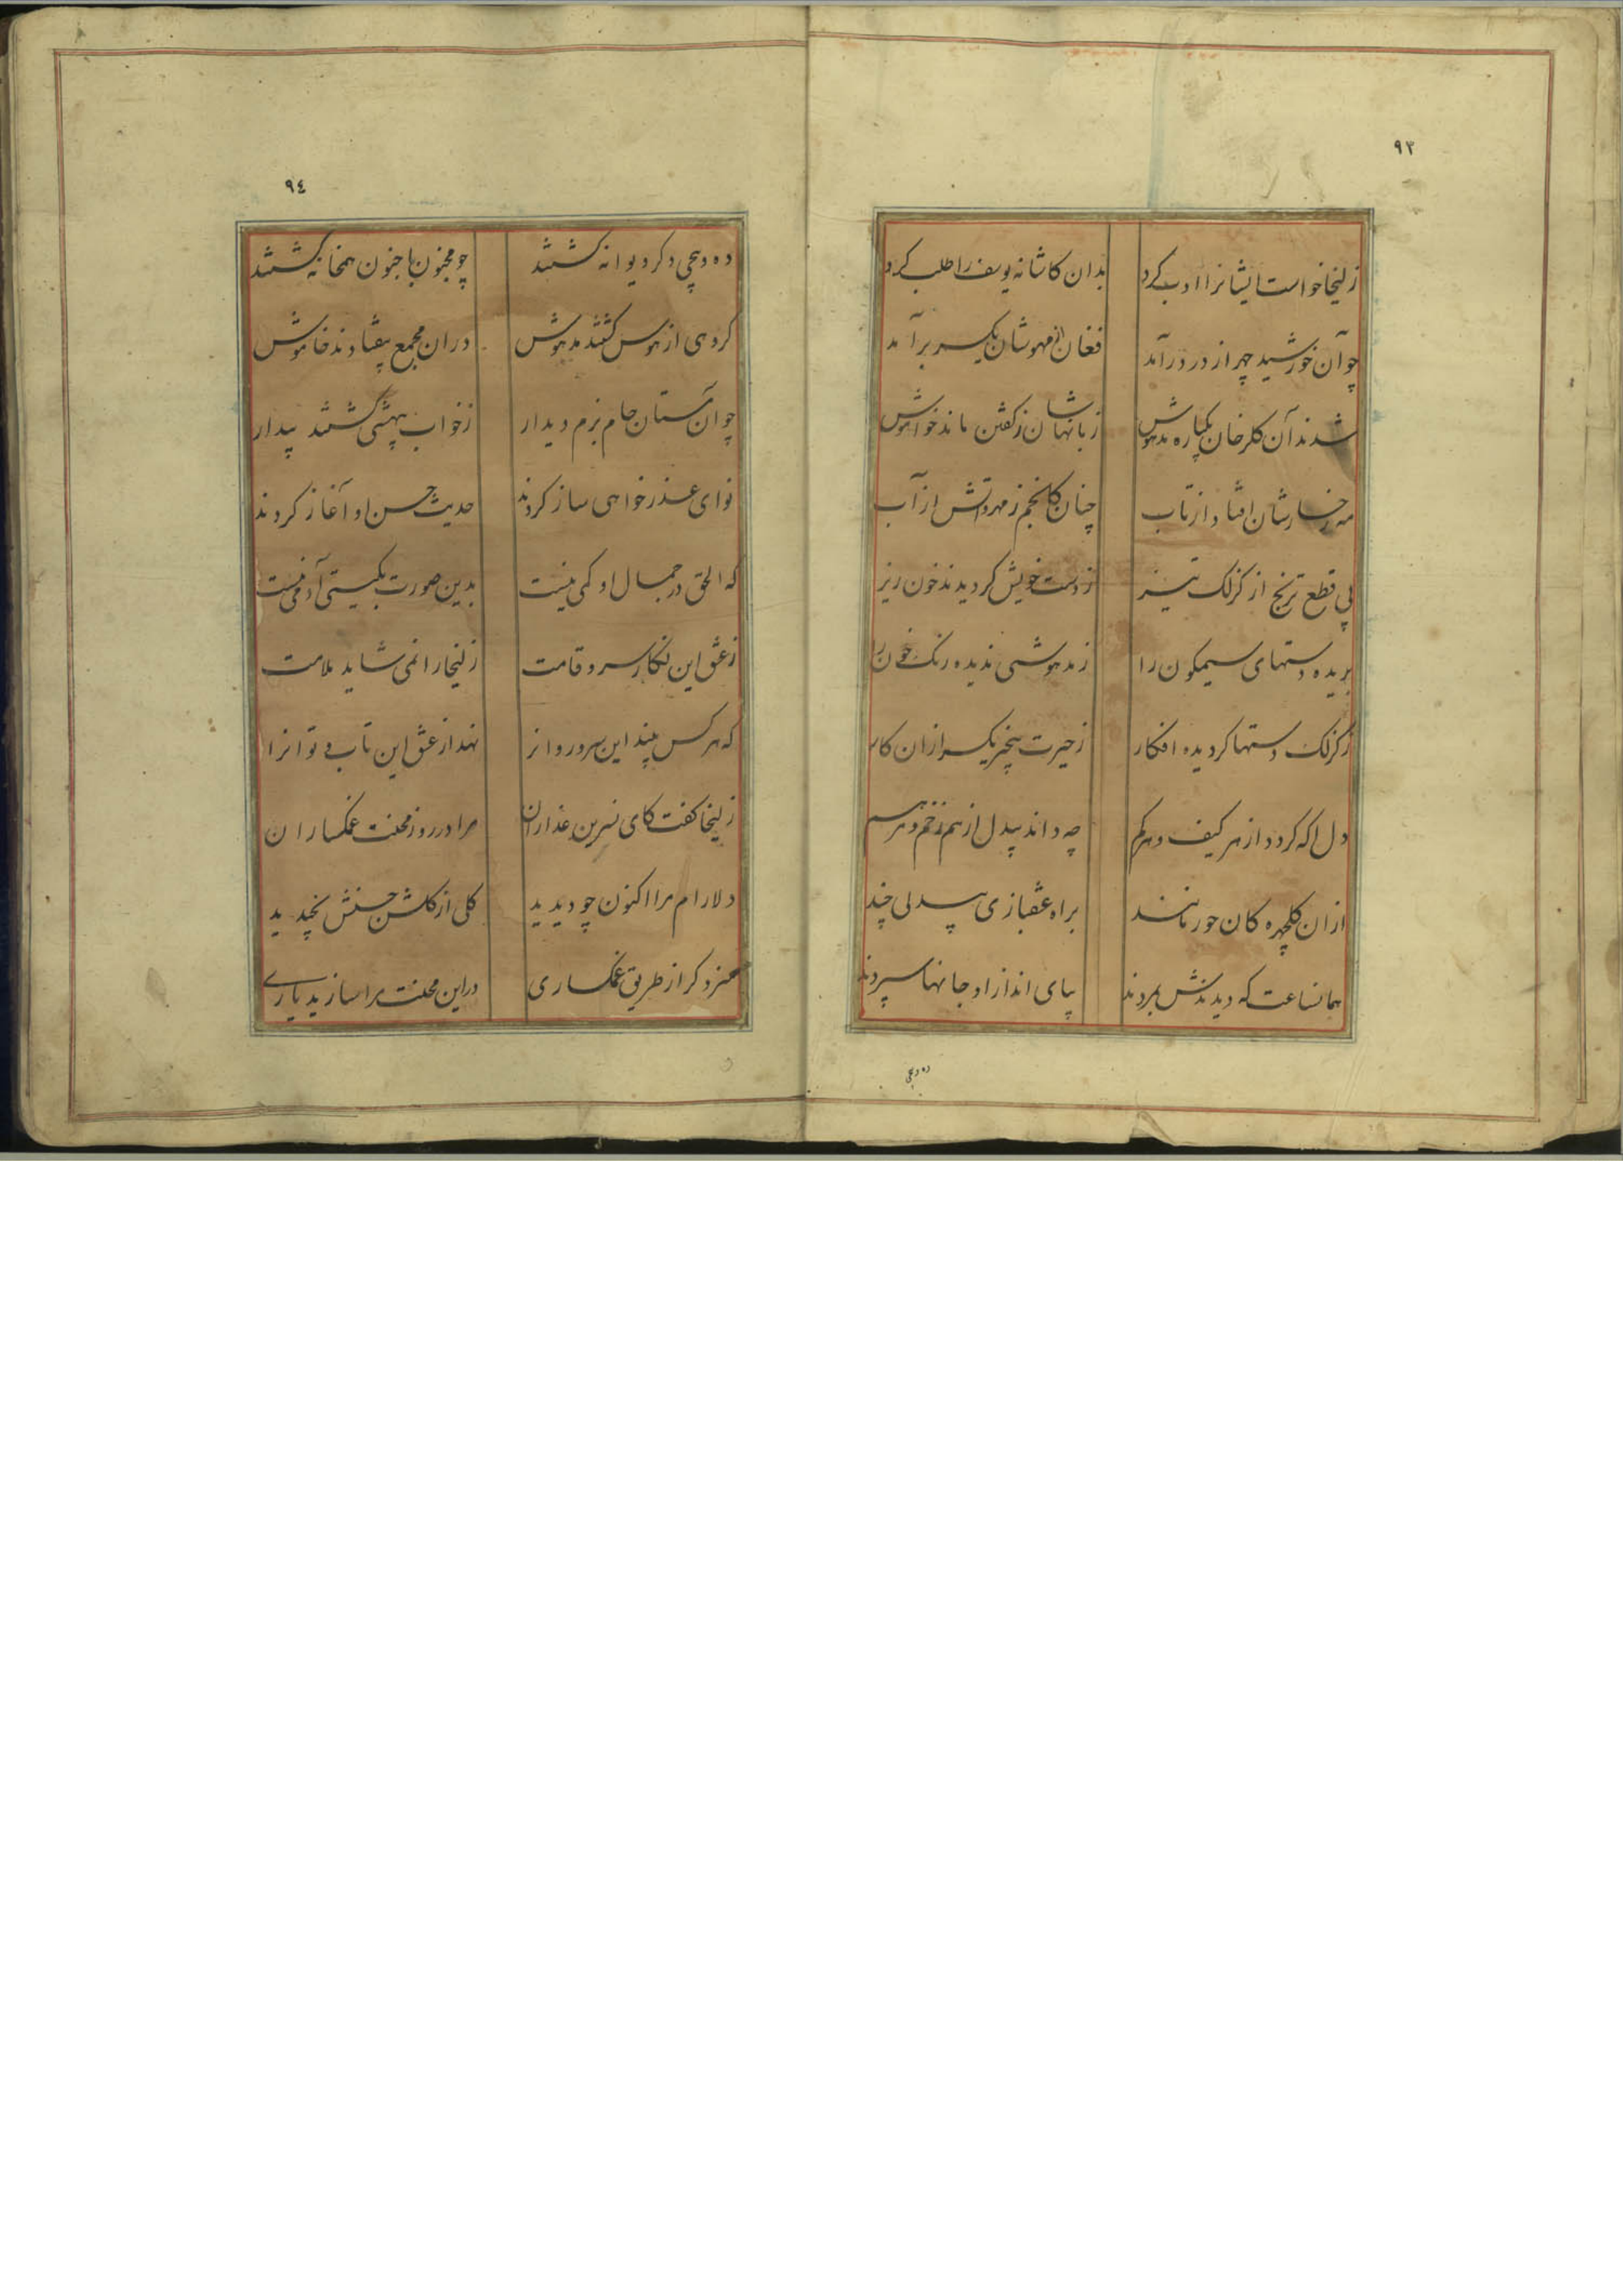 ٩٣
زلیخا خواست ایشانرا ادب کرد بدان کاشانه یوسف را طلب کرد
چو آن خورشید چهر از در درآمد فغان از مهوشان یکسر برآمد
شدند آن کلرخان یکباره مدهوش زبانهاشان ز کفتن ماند خواموش
مه رخسارشان افتاد از تاب چنان کانجم ز مهر و آتش از آب
پی قطع ترنج از کزلک تیز ز دست خویش کردیدند خون ریز
بریده دستهای سیمکون را ز مدهوشی ندیده رنک خون را
ز کزلک دستها کردیده افکار ز حیرت بیخبر یکسر ازان کار
دل اکه کردد از هر کیف و هر کم چه داند بیدل از هم زخم و مرهم
ازان کلچهره کان حور مانند براه عشقبازی بیدلی چند
همانساعت که دیدندش بمردند بپای انداز او جانها سپردند
ده و پنجی
٩٤
ده و پنجی دکر دیوانه کشتند چو مجنون با جنون همخانه کشتند
کروهی از هوس کشتند مدهوش دران مجمع بیفتادند خاموش
چو آن مستان جام بزم دیدار ز خواب بیهشی کشتند بیدار
نوای عذرخواهی ساز کردند حدیث حسن او آغاز کردند
که الحق در جمال او کمی نیست بدین صورت بکیتی آدمی نیست
ز عشق این نکار سرو قامت زلیخا را نمی شاید ملامت
که هر کس بیند این سرو روانرا نهد از عشق این تاب و توانرا
زلیخا کفت کای نسرین عذاران مرا در روز محنت غمکساران
دلارام مرا اکنون چو دیدید کلی از کلشن حسنش نچیدید
سزد کر از طریق غمکساری در این محنت مرا سازید یاری